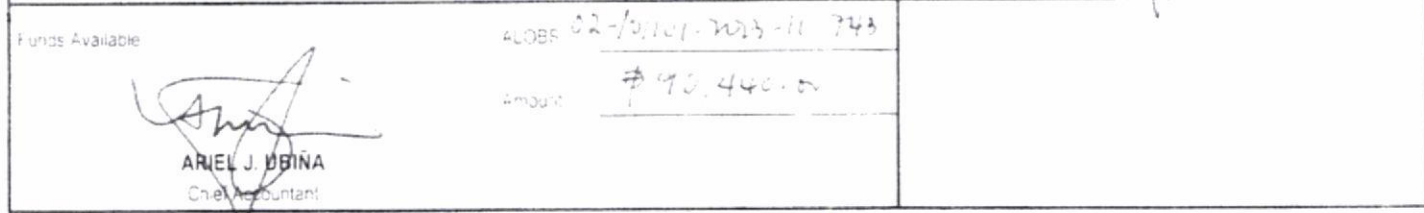 Funds Available
ALOBS 02-101101-2013-11 743
Amount ₱ 90,440.00
ARIEL J. UBIÑA
Chief Accountant